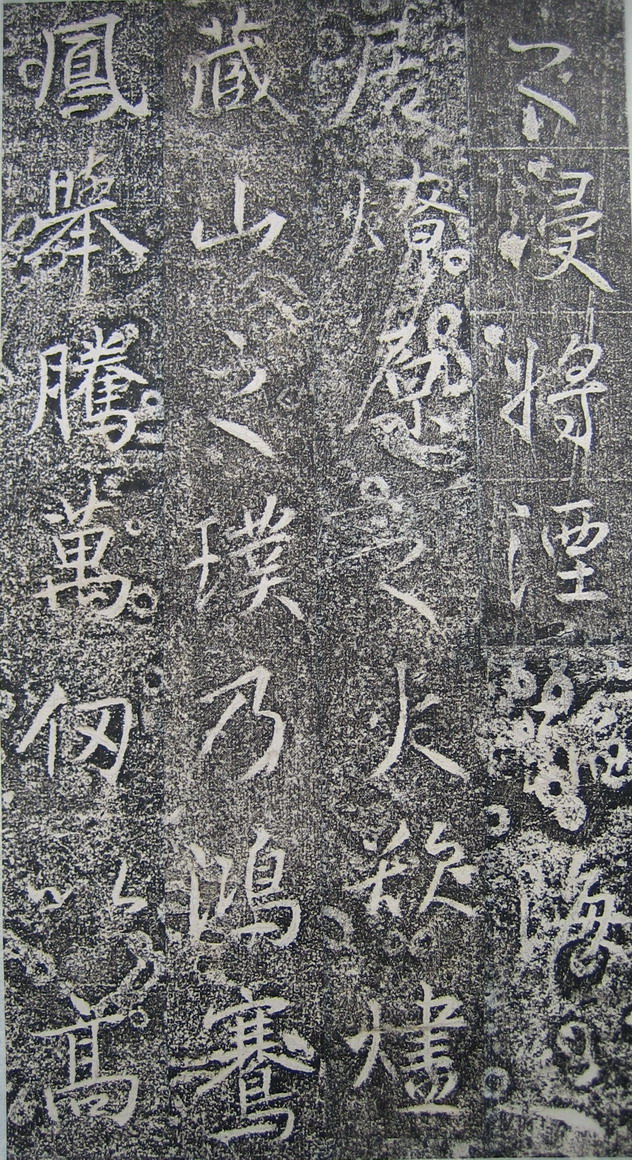 之浸將湮海
居燎原之火欻燼
藏山之璞乃鴻騫
鳳舉騰萬仞以高